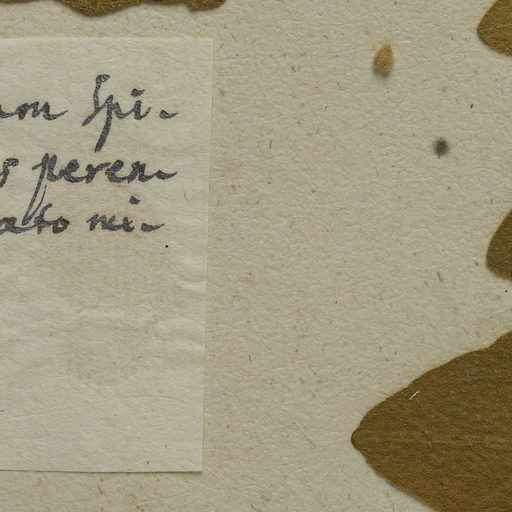 um Spi-
s peren-
ato mi-